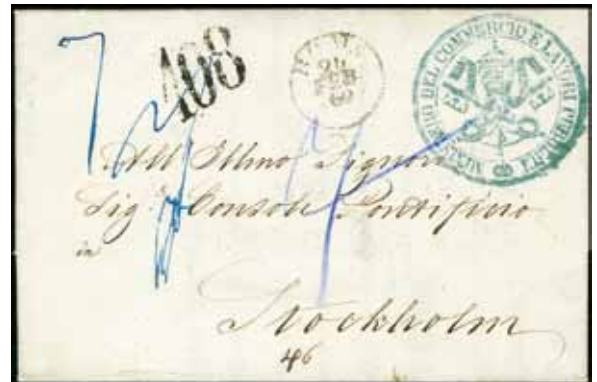 108
24
MINISTERO DEL COMMERCIO E LAVORI PUBBLICI
All' Illmo Signore
Sig. Console Pontificio
in
Stockholm
46